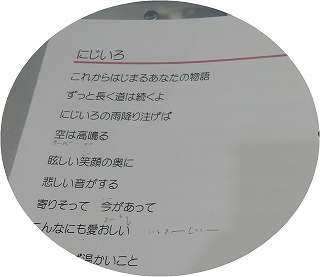 にじいろ
これからはじまるあなたの物語
ずっと長く道は続くよ
にじいろの雨降り注げば
空は高鳴る
眩しい笑顔の奥に
悲しい音がする
寄りそって 今があって
こんなにも愛おしい
温かいこと